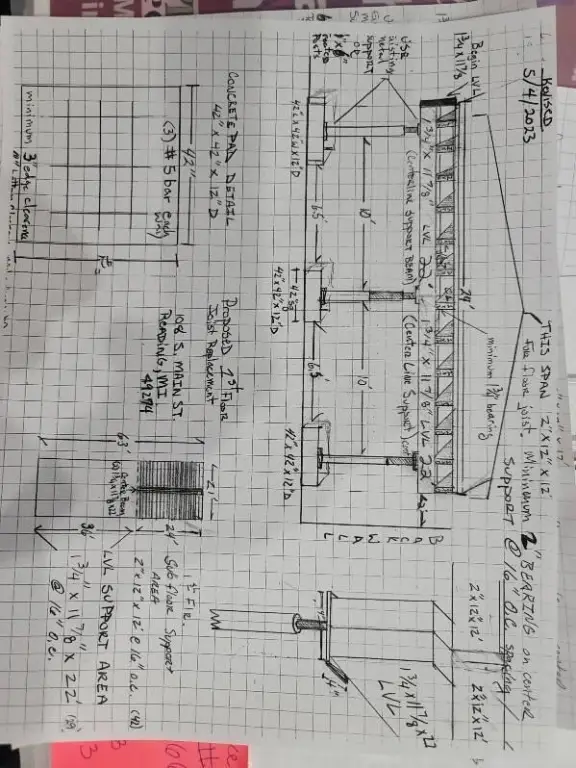 REVISED
5/4/2023
THIS SPAN 2"x12"x12'
For floor joist. Minimum 2" BEARING on center
SUPPORT @ 16" O.C. spacing
Begin LVL
1 3/4 x 11 7/8
24'
minimum 1 1/2" bearing
1 3/4" x 11 7/8" LVL 22'
1 3/4" x 11 7/8" LVL 22'
(Centerline Support BEAM)
(Center Line Support)
USE
existing
metal
support
42" x 42" x 12" D
10'
10'
6.5'
6.5'
42" x 42" x 12" D
42" x 42" x 12" D
BACK WALL
2"x12"x12'
2"x12"x12'
1 3/4 x 11 7/8 x 22
LVL
4"
CONCRETE PAD DETAIL
42" x 42" x 12" D
42"
(3) #5 bar each
way
minimum 3" edge clearance
Proposed 1st Floor
Joist Replacement
108 S. MAIN ST.
READING, MI
49274
63'
21'
24'
36'
1st Flr.
Sub floor Support
AREA
2"x12"x12' @ 16" o.c.
LVL SUPPORT AREA
1 3/4" x 11 7/8" x 22'
@ 16" o.c.